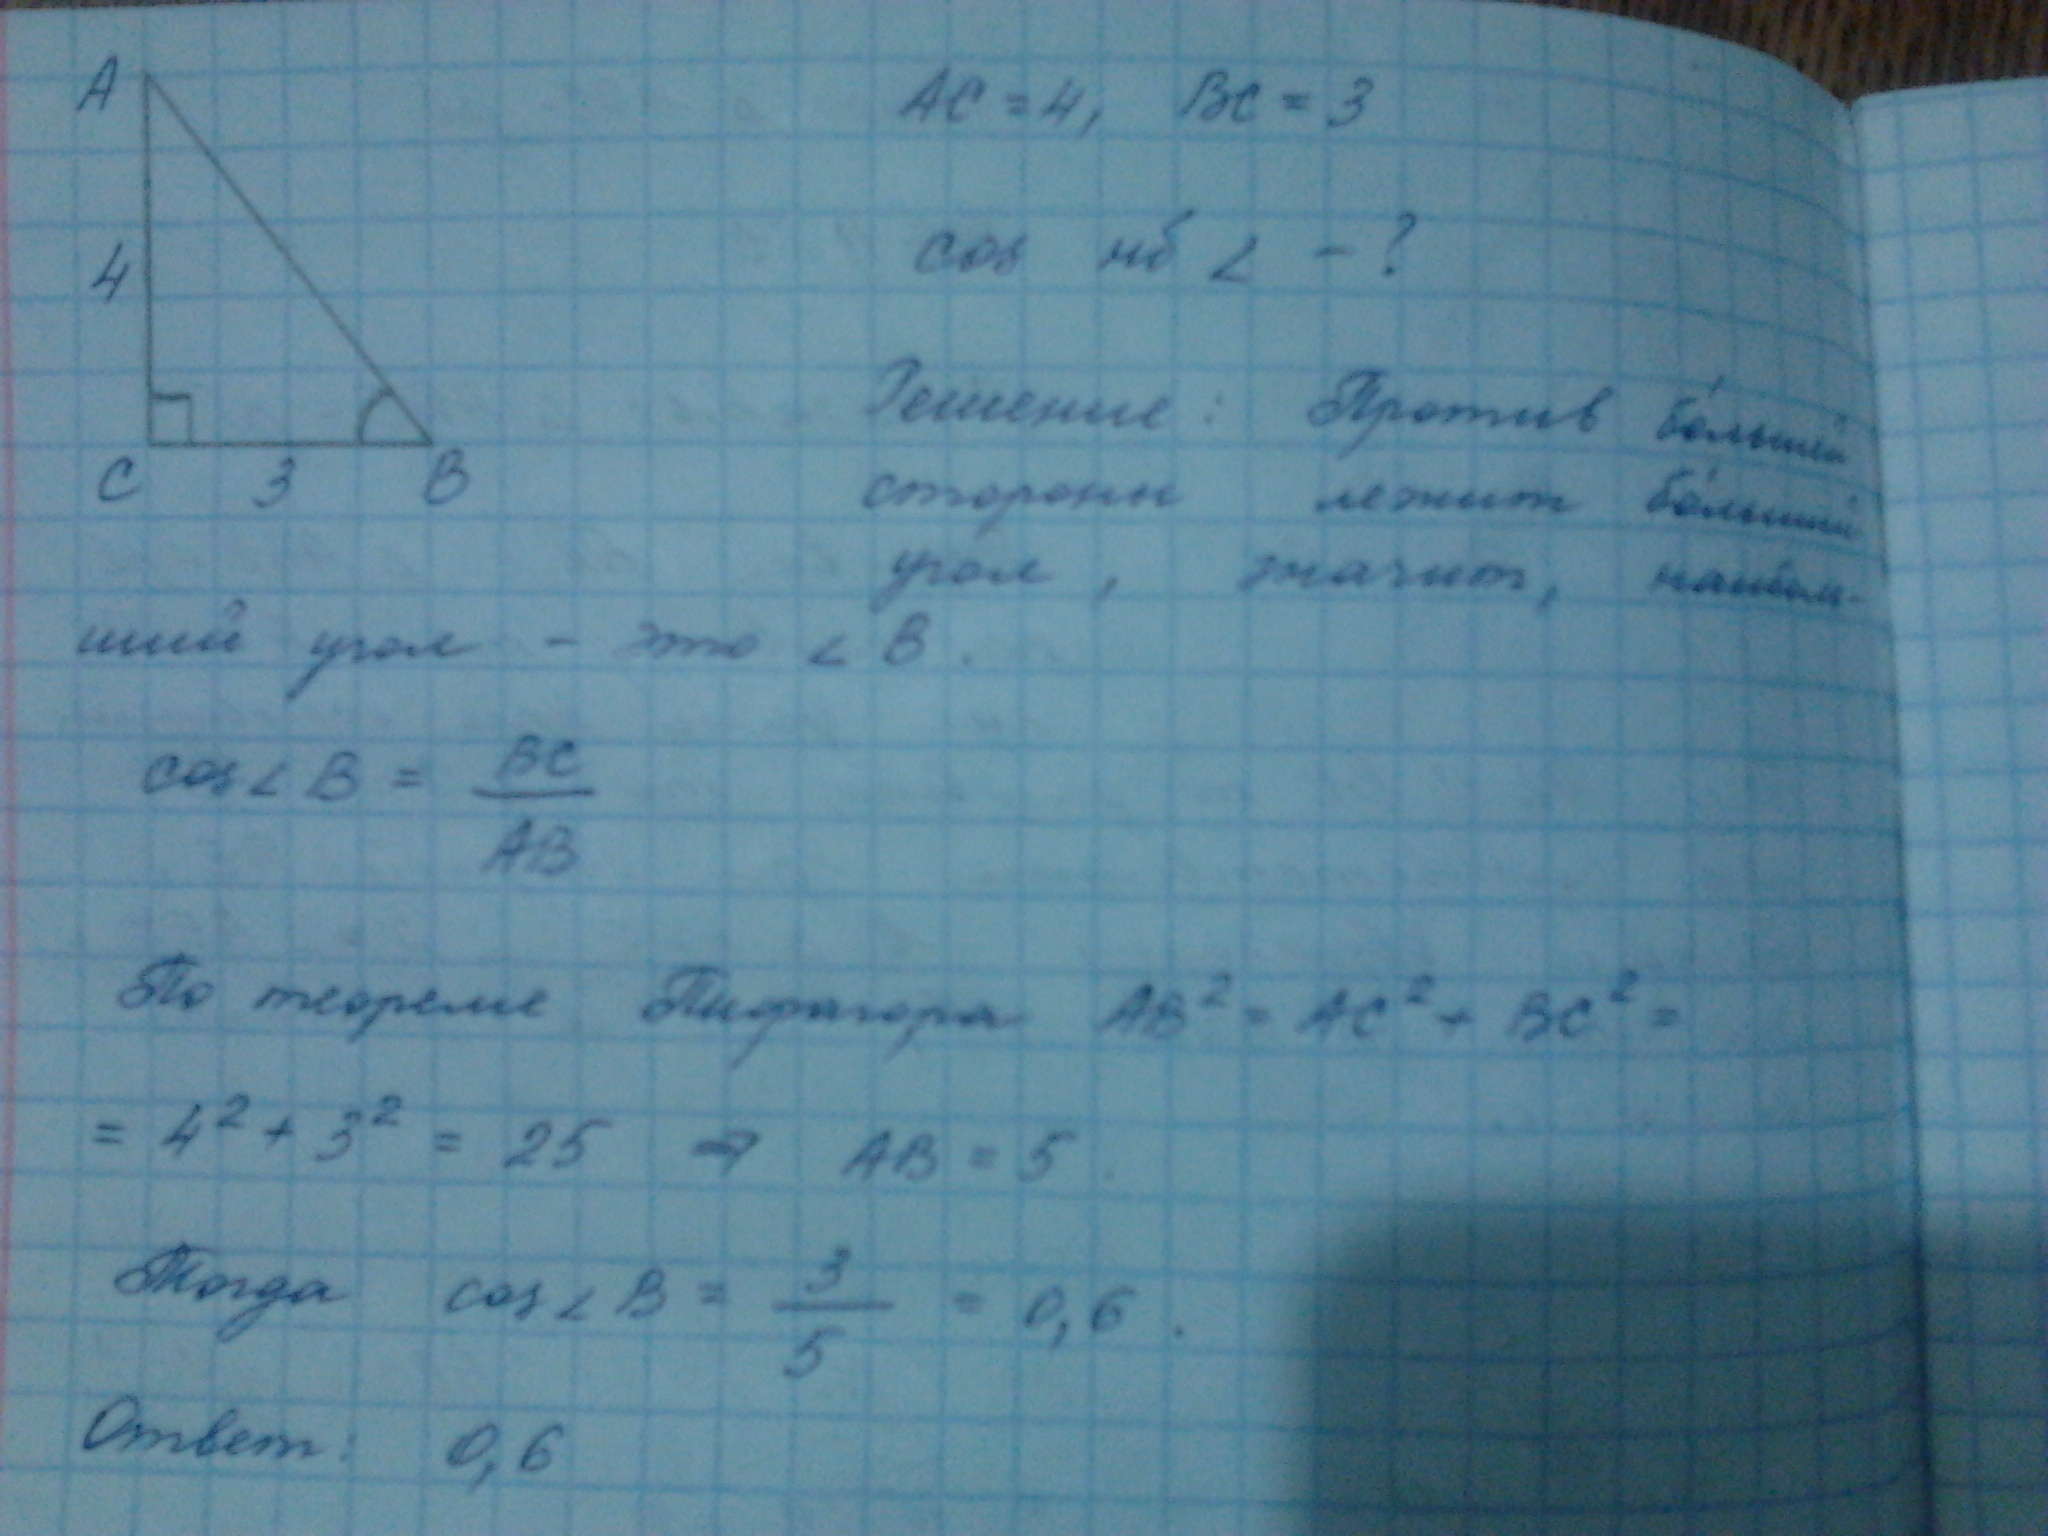 A
4
C 3 B
AC = 4, BC = 3
cos нб ∠ - ?
Решение: Против бо́льшей
стороны лежит бо́льший
угол, значит, наиболь-
ший угол - это ∠B.
cos∠B = BC/AB
По теореме Пифагора AB² = AC² + BC² =
= 4² + 3² = 25 ⇒ AB = 5.
Тогда cos∠B = 3/5 = 0,6.
Ответ: 0,6